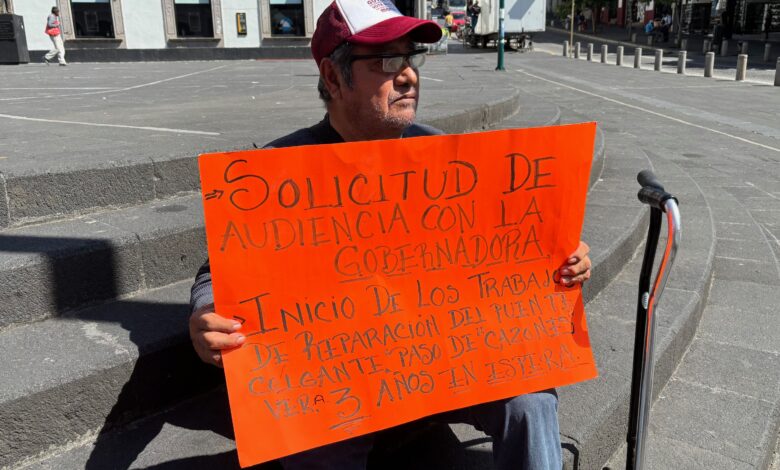 → SOLICITUD DE
AUDIENCIA CON LA
GOBERNADORA
→ INICIO DE LOS TRABAJO
DE REPARACION DEL PUENTE
COLGANTE, "PASO DE "CAZONES"
VER.ª 3 AÑOS EN ESPERA.